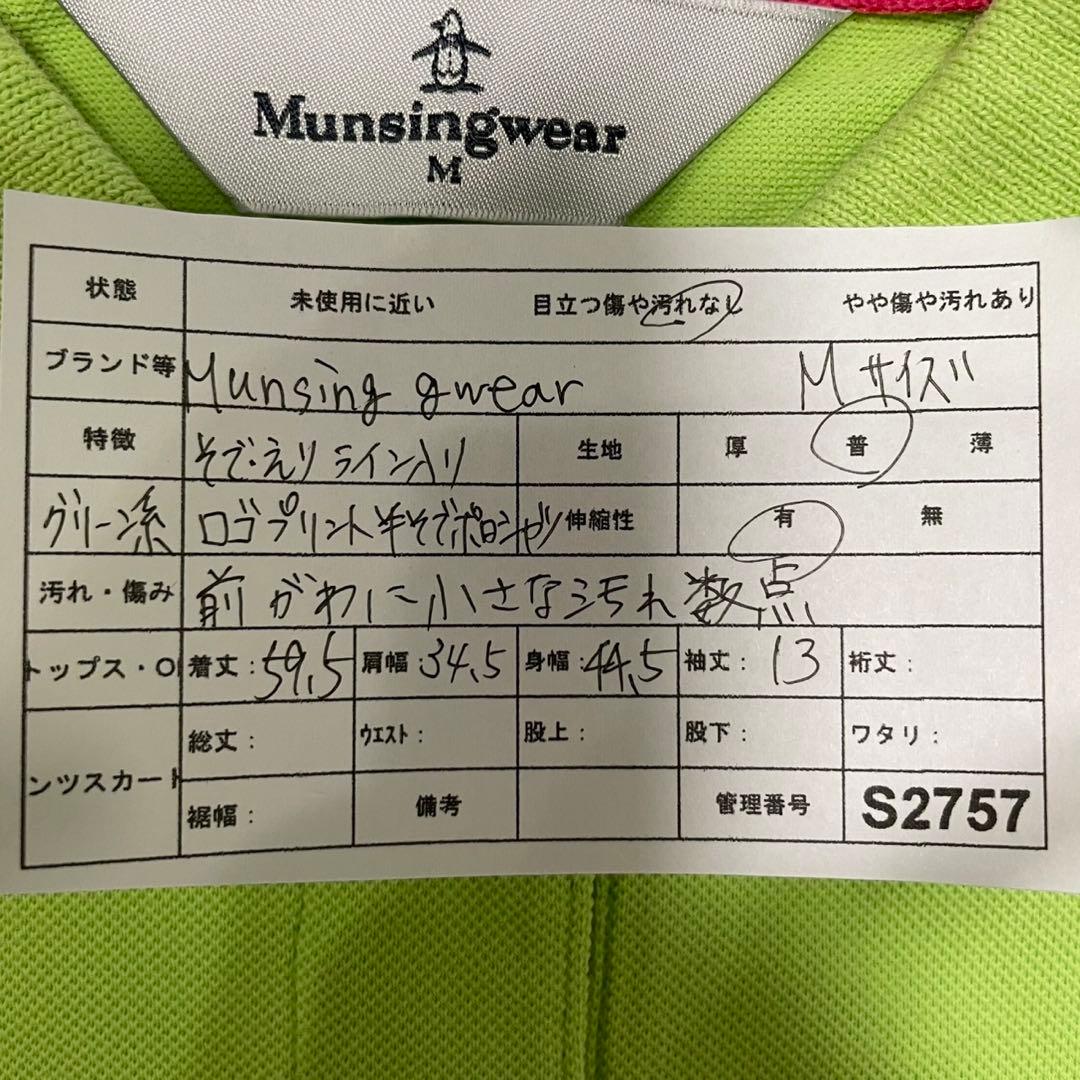 Munsingwear
M
状態 未使用に近い 目立つ傷や汚れなし やや傷や汚れあり
ブランド等 Munsing gwear Mサイズ
特徴 そで・えりライン入り 生地 厚 普 薄
グリーン系 ロゴプリント半そでポロシャツ 伸縮性 有 無
汚れ・傷み 前がわに小さな汚れ数点
トップス・O 着丈:59.5 肩幅:34.5 身幅:44.5 袖丈:13 裄丈:
ンツスカート 総丈: ウエスト: 股上: 股下: ワタリ:
裾幅: 備考 管理番号 S2757